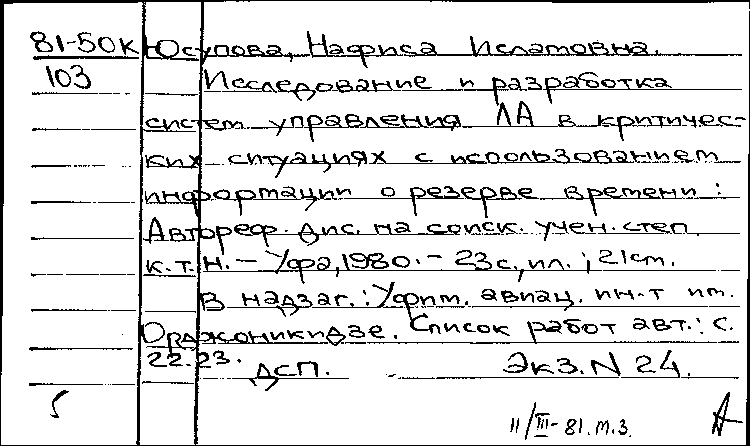 81-50к Юсупова, Нафиса Исламовна.
103 Исследование и разработка
систем управления ЛА в критичес-
ких ситуациях с использованием
информации о резерве времени:
Автореф. дис. на соиск. учен. степ.
к.т.н. – Уфа, 1980. – 23 с, ил.; 21 см.
В надзаг.: Уфим. авиац. ин-т им.
Орджоникидзе. Список работ авт.: с.
22-23.
ДСП. Экз. N 24.
11/III-81.м.з.